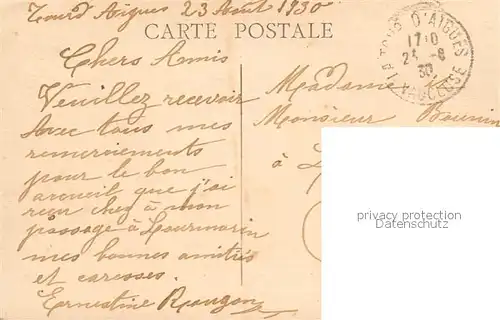 Tour d'Aigues 23 Août 1930
CARTE POSTALE
LA TOUR D'AIGUES
17 0
24 -8
30
VAUCLUSE
Chers Amis
Veuillez recevoir
Avec tous mes
remerciements
pour le bon
accueil que j'ai
reçu chez à mon
passage à Lourmarin
mes bonnes amitiés
et caresses.
Ernestine Rougon
Madame
Monsieur Bounin
à L
privacy protection
Datenschutz